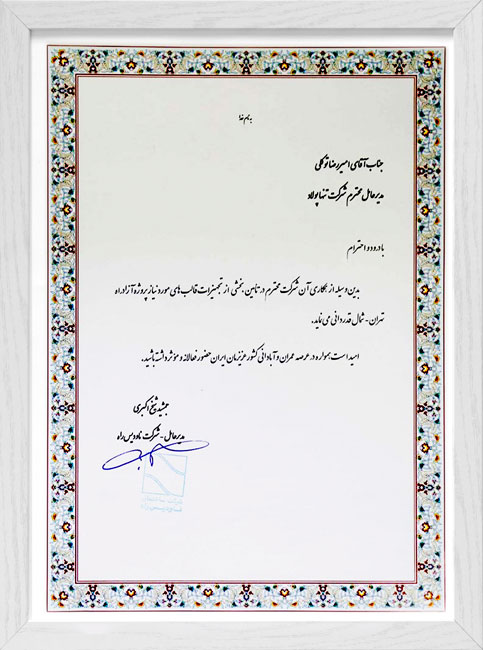 به نام خدا
جناب آقای امیررضا توکلی
مدیرعامل محترم شرکت تنها پولاد
با درود و احترام
بدین وسیله از همکاری آن شرکت محترم در تامین بخشی از تجهیزات قالب های مورد نیاز پروژه آزادراه
تهران - شمال قدردانی می نماید.
امید است همواره در عرصه عمران و آبادانی کشور عزیزمان ایران حضور فعالانه و مؤثر داشته باشید.
جمشید شیخ اکبری
مدیرعامل - شرکت تادیس راه